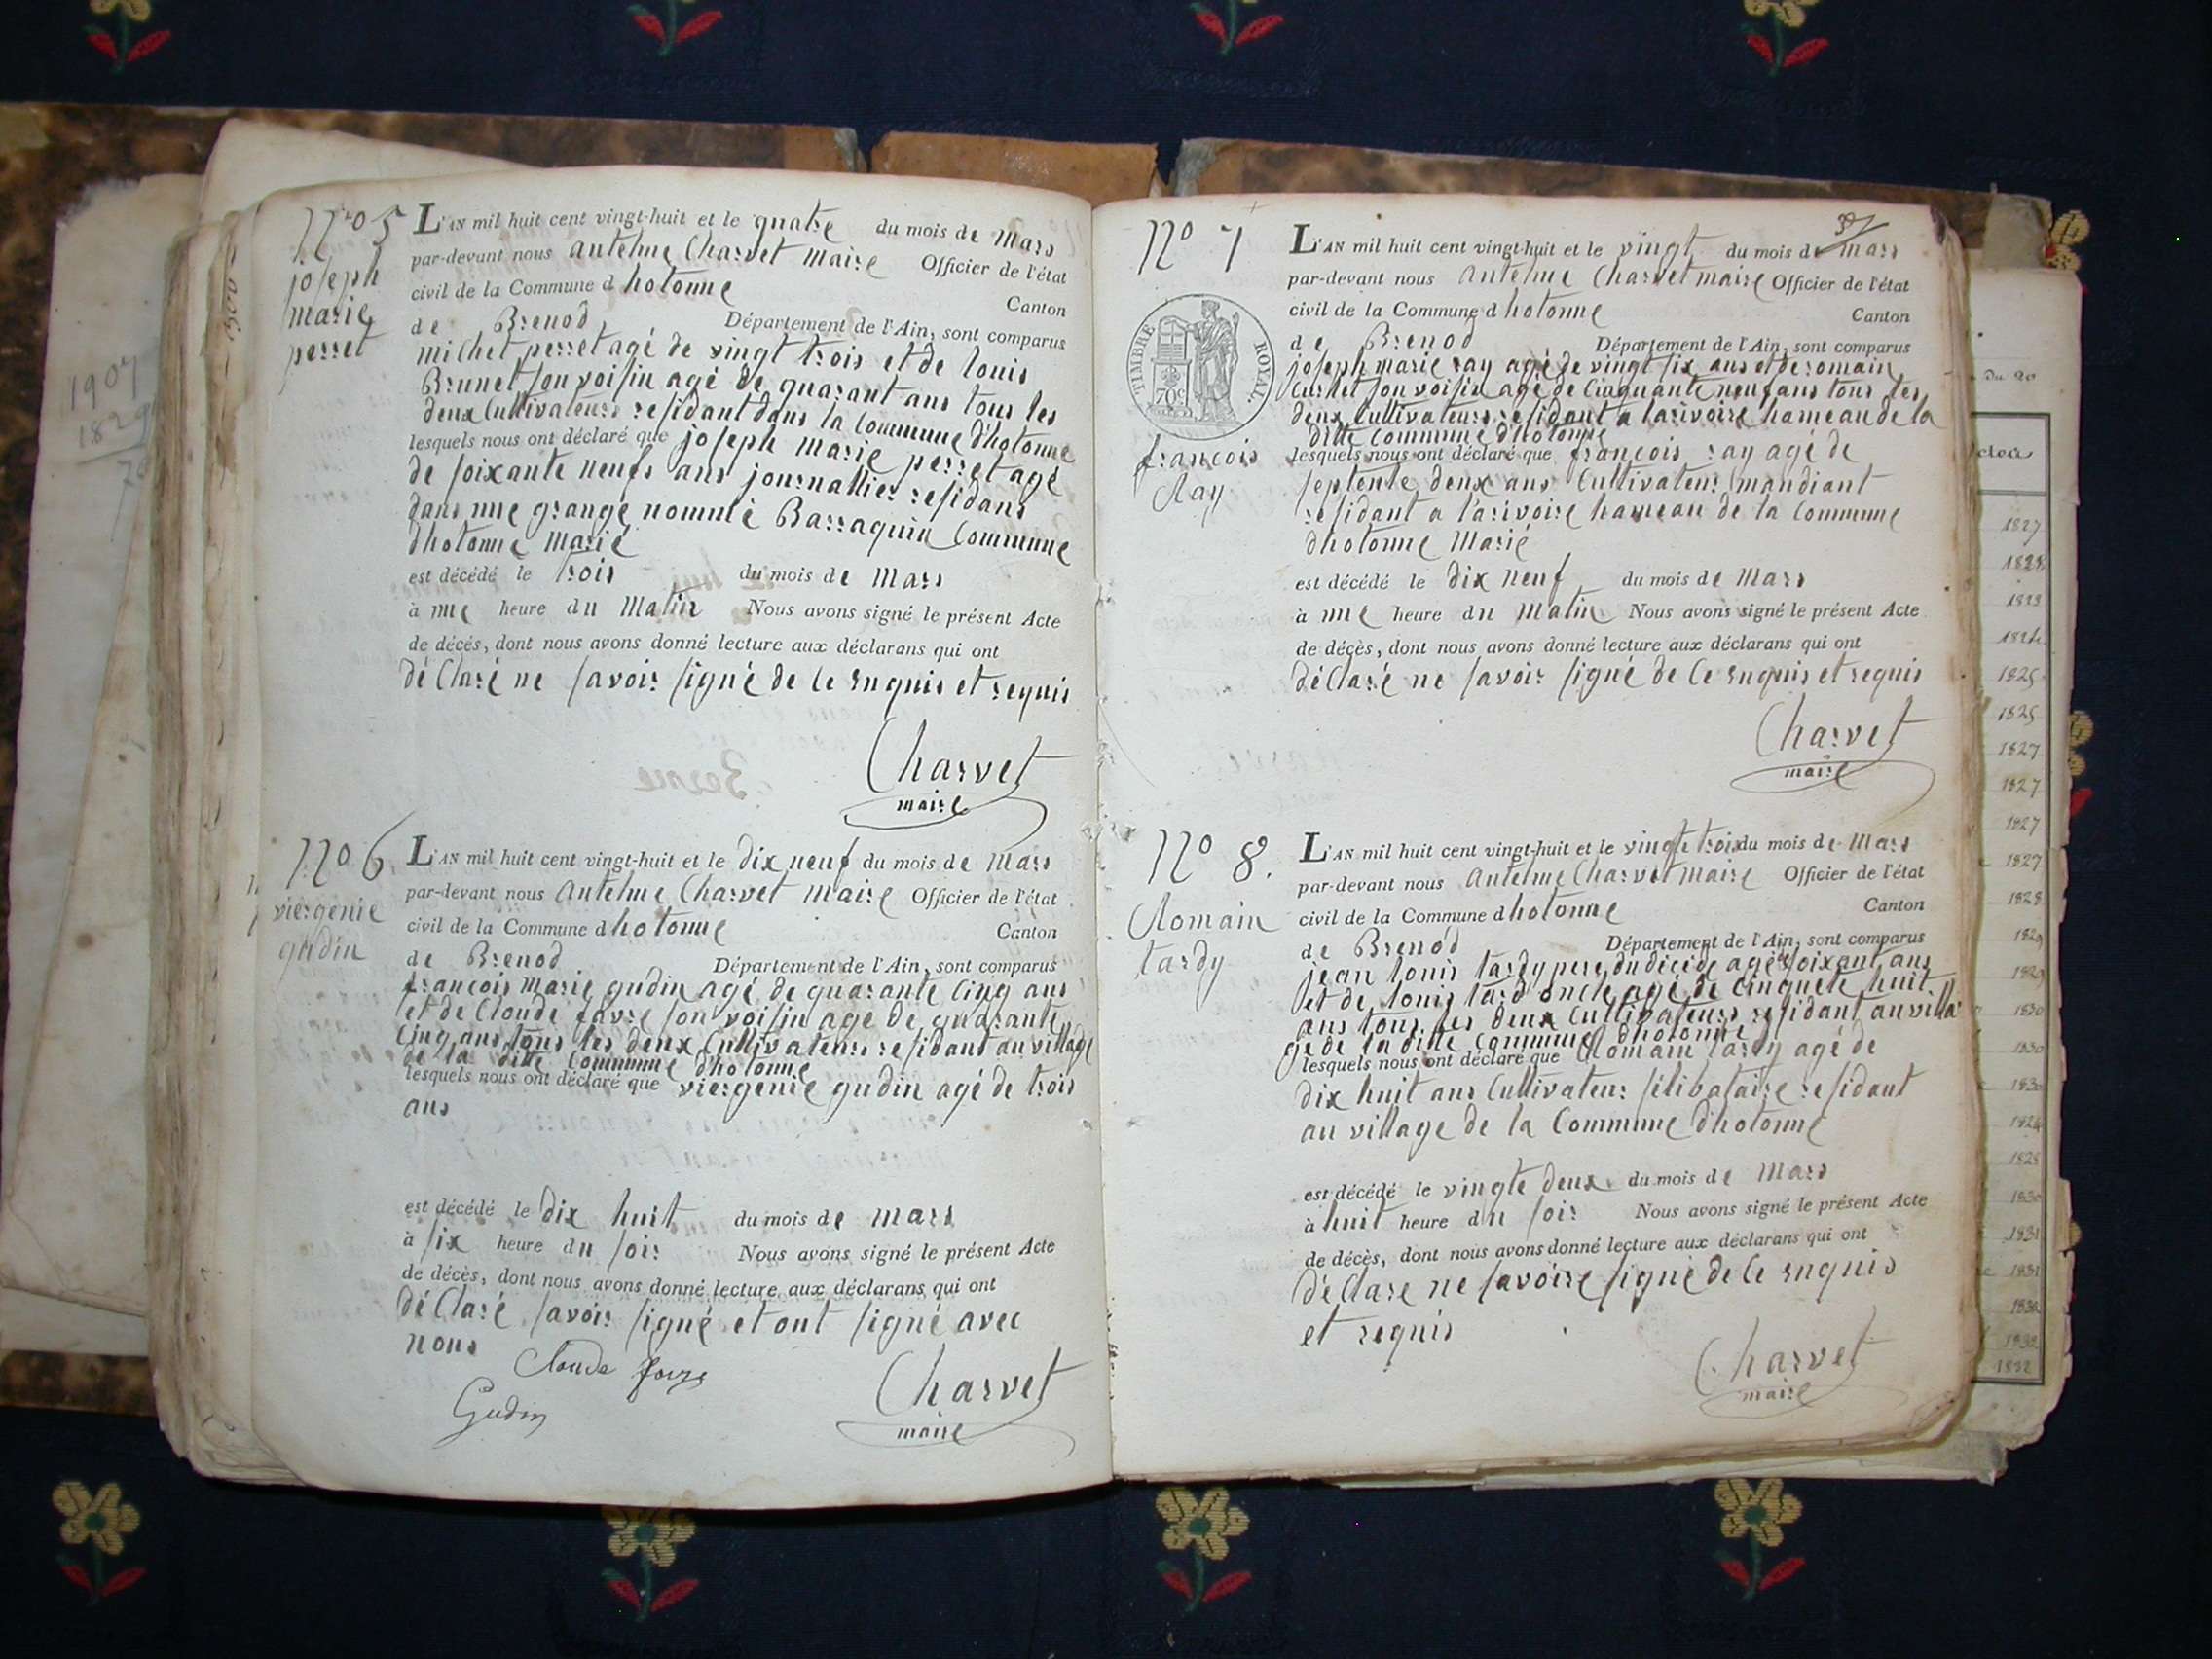 1907
1829
N.o 5
joseph
marie
perret
L'AN mil huit cent vingt-huit et le quatre du mois de Mars
par-devant nous antelme Charvet maire Officier de l'état
civil de la Commune d hotonne Canton
de Brenod Département de l'Ain, sont comparus
michet perret agé de vingt trois et de louis
Brunet son voisin agé de quarant ans tous les
deux Cultivateurs residant dans la Commune d'hotonne
lesquels nous ont déclaré que joseph marie perret agé
de soixante neufs ans journallier residans
dans une grange nommé Barraquin Commune
dhotonne marié
est décédé le trois du mois de Mars
à une heure du Matin Nous avons signé le présent Acte
de décés, dont nous avons donné lecture aux déclarans qui ont
déClaré ne savoir signé de Ce enquis et requis
Charvet
maire
N.o 6.
viergenie
gudin
L'AN mil huit cent vingt-huit et le dix neuf du mois de Mars
par-devant nous antelme Charvet maire Officier de l'état
civil de la Commune d hotonne Canton
de Brenod Département de l'Ain, sont comparus
francois marie gudin agé de quarante Cinq ans
et de Cloude favre son voisin agé de quarante
Cinq ans tous les deux Cultivateurs residant au village
de la ditte Commune d'hotonne
lesquels nous ont déclaré que viergenie gudin agé de trois
ans
est décédé le dix huit du mois de mars
à six heure du soir Nous avons signé le présent Acte
de décès, dont nous avons donné lecture aux déclarans qui ont
déClaré savoir signé et ont signé avec
nous
Cloude favre
Gudin
Charvet
maire
32
N.o 7
TIMBRE ROYAL
70c
francois
Ray
L'AN mil huit cent vingt-huit et le vingt du mois de mars
par-devant nous antelme Charvet maire Officier de l'état
civil de la Commune d hotonne Canton
de Brenod Département de l'Ain, sont comparus
joseph marie ray agé de vingt six ans et de romain
son voisin agé de Cinquante neuf ans tous les
deux Cultivateurs residant a larivoire hameau de la
ditte Commune d'hotonne
lesquels nous ont déclaré que francois ray agé de
septente deux ans Cultivateur mandiant
residant a larivoire hameau de la Commune
dhotonne Marié
est décédé le dix neuf du mois de Mars
à une heure du Matin Nous avons signé le présent Acte
de décès, dont nous avons donné lecture aux déclarans qui ont
déClaré ne savoir signé de Ce enquis et requis
Charvet
maire
N.o 8.
Romain
tardy
L'AN mil huit cent vingt-huit et le vingt trois du mois de Mars
par-devant nous antelme Charvet maire Officier de l'état
civil de la Commune d hotonne Canton
de Brenod Département de l'Ain, sont comparus
jean louis tardy pere du décédé agé soixant ans
et de louis tard oncle agé de Cinquete huit
ans tous les deux Cultivateurs residant au villa
ge de la ditte Commune dhotonne
lesquels nous ont déclaré que Romain tardy agé de
dix huit ans Cultivateur sélibataire residant
au village de la Commune d'hotonne
est décédé le vingte deux du mois de Mars
à huit heure du soir Nous avons signé le présent Acte
de décès, dont nous avons donné lecture aux déclarans qui ont
déClare ne savoire signe de Ce enquis
et requis
Charvet
maire
du 20
1827
1828
1823
1824
1825
1825
1827
1827
1827
1827
1828
1829
1829
1830
1830
1830
1824
1825
1830
1831
1831
1830
1832
1832